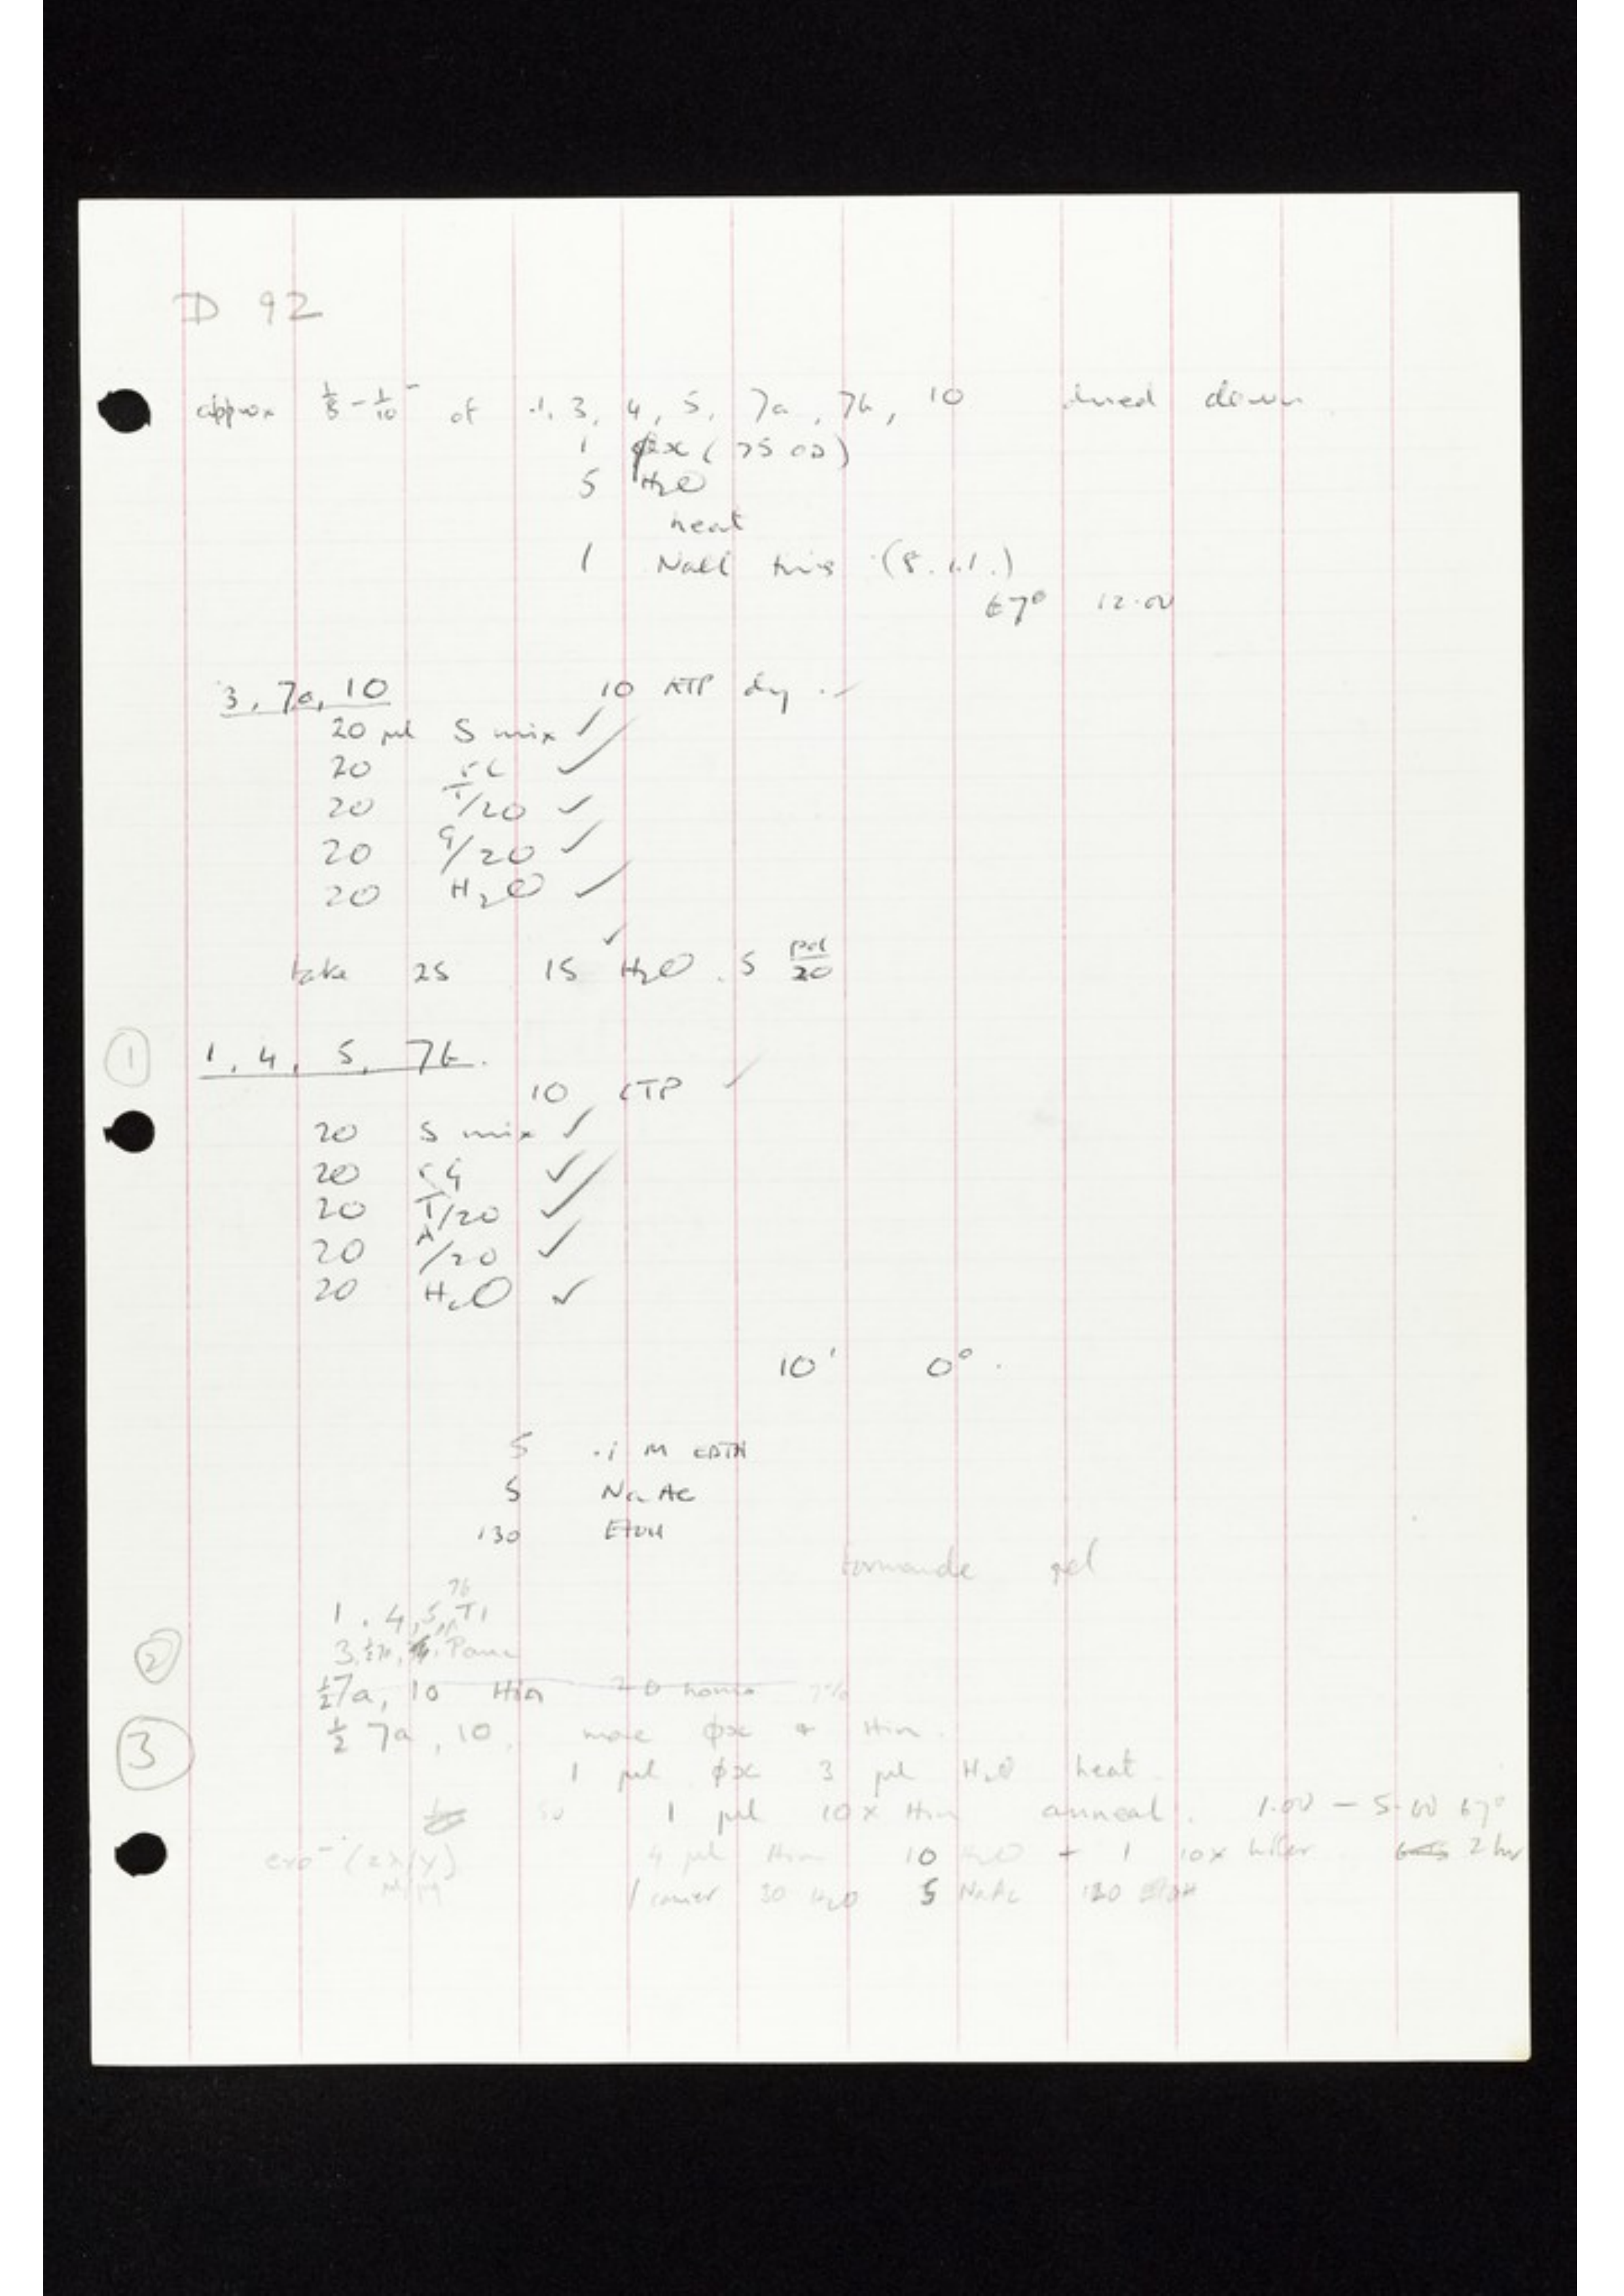 D 92
approx 1/5 - 1/10 of 1, 3, 4, 5, 7a, 7b, 10 dried down
1 φx (25 OD)
5 H2O
heat
1 NaCl tris (5.1.1.)
67° 12.00
3, 7a, 10 10 ATP dry ✓
20 µl S mix ✓
20 rC ✓
20 T/20 ✓
20 G/20 ✓
20 H2O ✓
take 25 15 H2O ✓ 5 pol/20
① 1, 4, 5, 7b.
10 CTP ✓
20 S mix ✓
20 rG ✓
20 T/20 ✓
20 A/20 ✓
20 H2O ✓
10' 0°.
5 .1 M EDTA
5 NaAc
130 EtOH
formamide gel
1, 4, 5, 7b T1
② 3, Panc
1/2 7a, 10 Hin 20 hours
③ 1/2 7a, 10, more φx + Hin.
1 µl φx 3 µl H2O heat
1 µl 10x Hin anneal. 1.00 - 5.00 67°
exo- 4 µl Hin 10 H2O + 1 10x buffer 2 hr
1 carrier 30 H2O 5 NaAc 120 EtOH